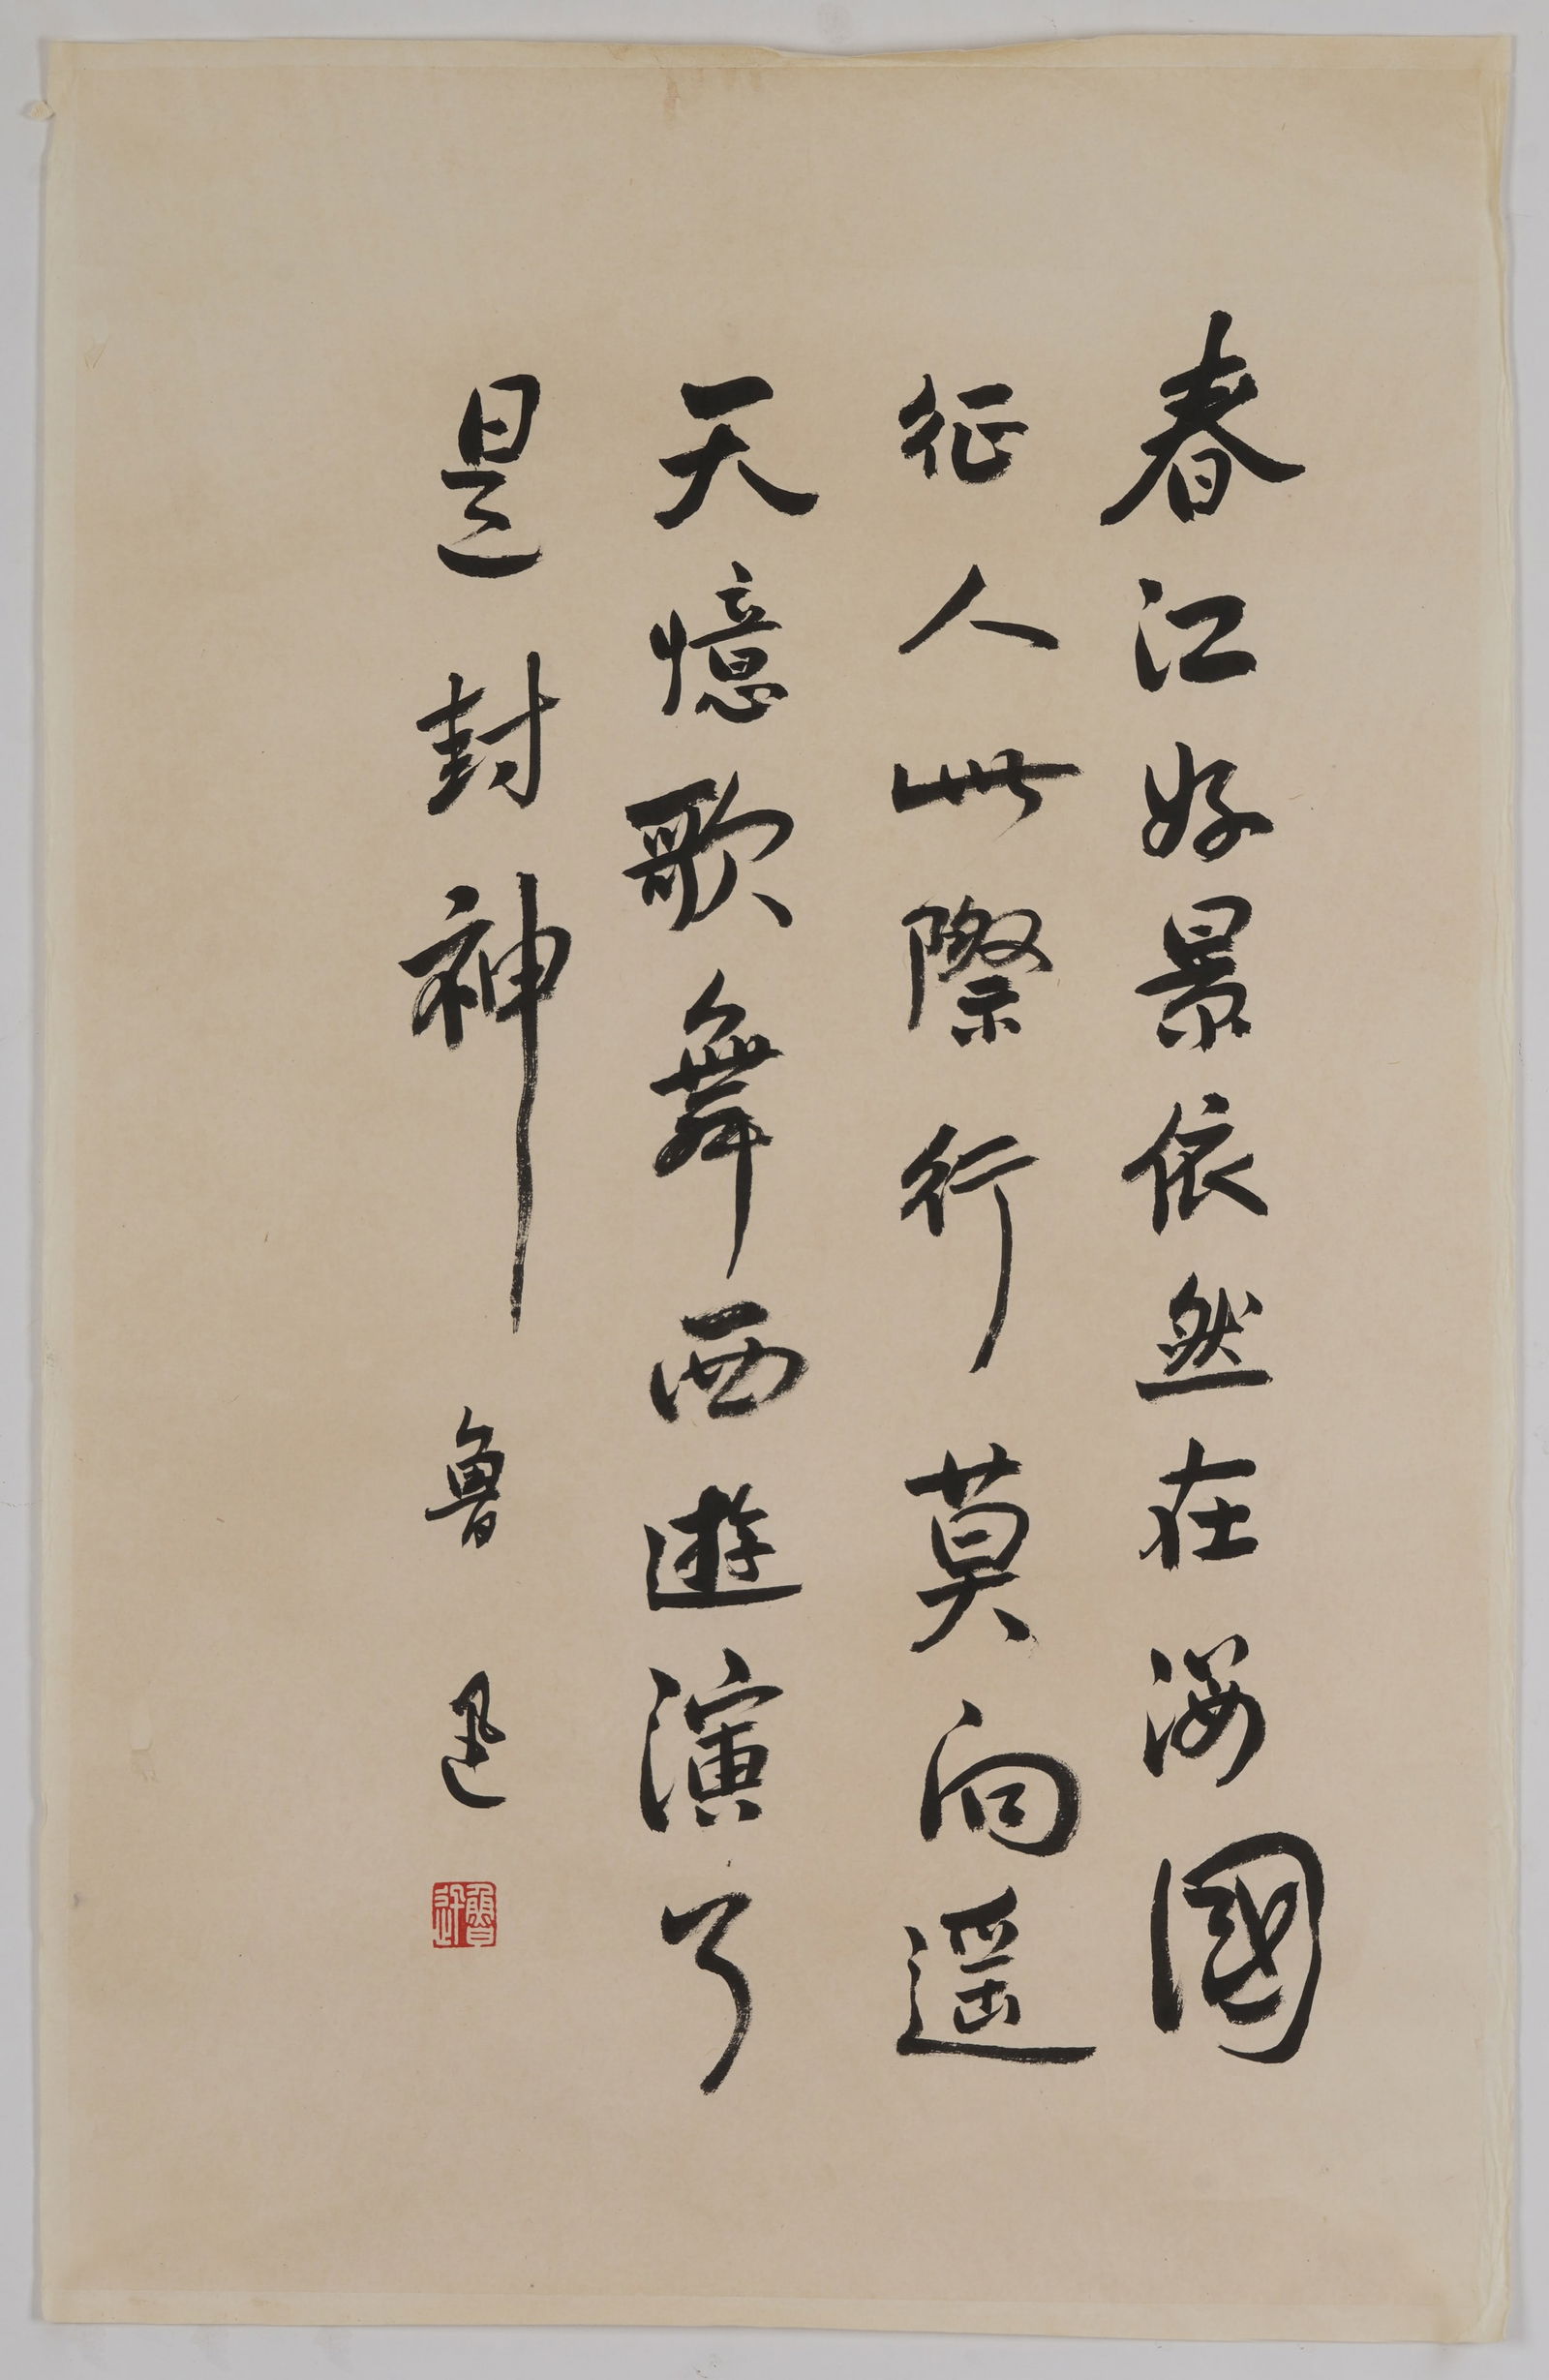 春江好景依然在海國
征人此際行莫向遙
天憶歌舞西遊演了
是封神 魯迅
魯迅